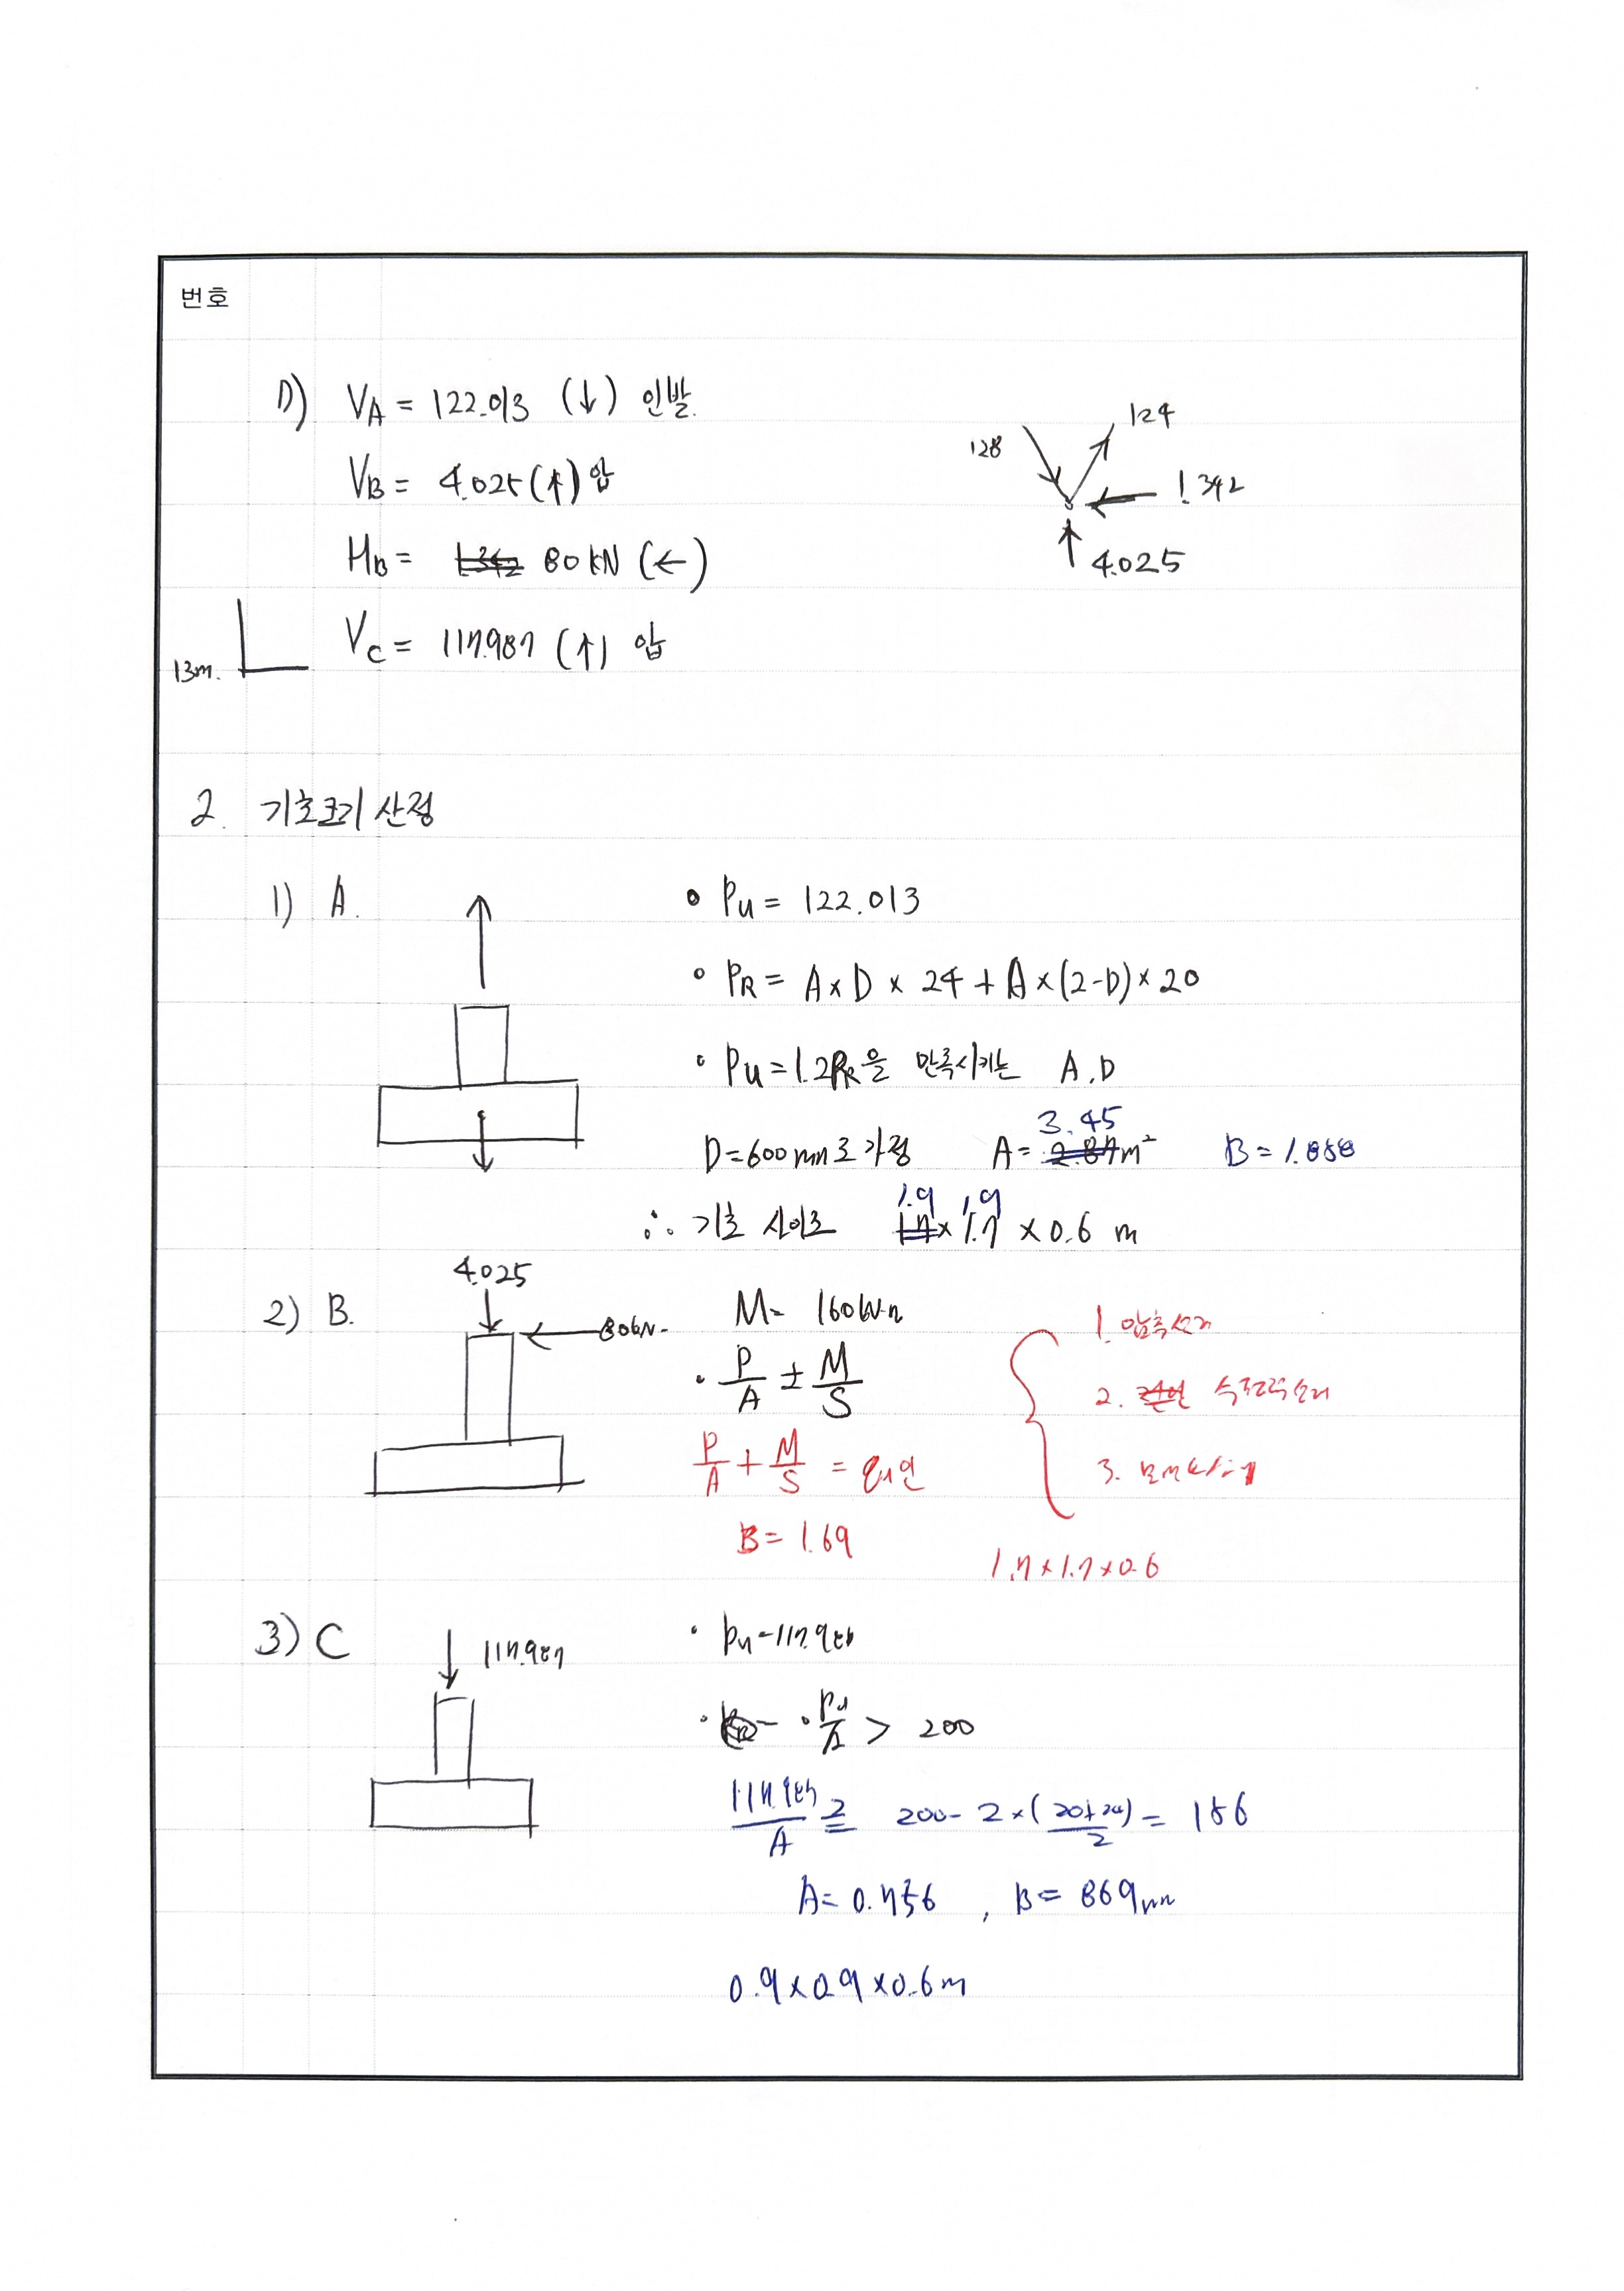 번호
D) VA = 122.013 (↓) 인발
128
124
VB = 4.025 (↑) 압
1.342
HB = 80 kN (←)
4.025
VC = 117.987 (↑) 압
13m.
2. 기초크기 산정
1) A.
• Pu = 122.013
• PR = A × D × 24 + A × (2-D) × 20
• Pu = 1.2PR을 만족시키는 A, D
D = 600mm로 가정 A = 3.45 m² B = 1.858
∴ 기초 사이즈 1.9 × 1.9 × 0.6 m
2) B. 4.025
80kN
M = 160kN·m
• P/A ± M/S
P/A + M/S =
B = 1.69
1. 압축
2. 수평력
3.
1.7 × 1.7 × 0.6
3) C 117.987
• Pu = 117.987
• Pu/A > 200
117.987/A ≧ 200 - 2 × (20+24)/2 = 156
A = 0.756 , B = 869mm
0.9 × 0.9 × 0.6m